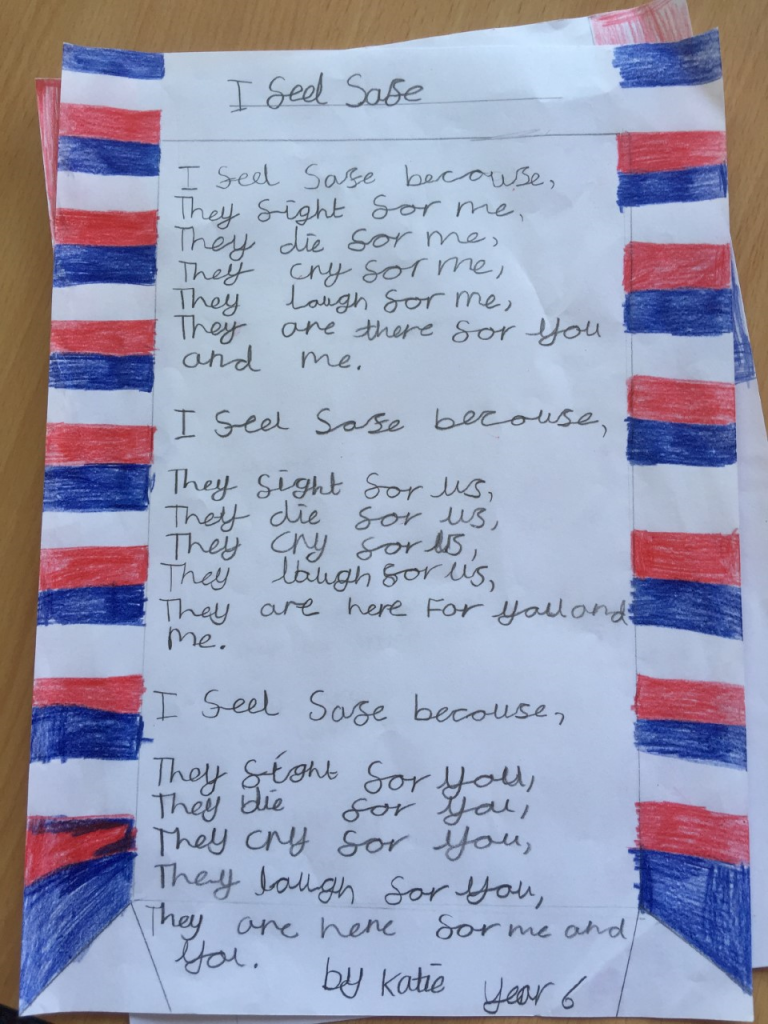 I feel Safe
I feel Safe because,
They fight for me,
They die for me,
They cry for me,
They laugh for me,
They are there for you
and me.
I feel Safe because,
They fight for us,
They die for us,
They cry for us,
They laugh for us,
They are here For you and
me.
I feel Safe because,
They fight for you,
They die for you,
They cry for you,
They laugh for you,
They are here for me and
you.
by Katie Year 6